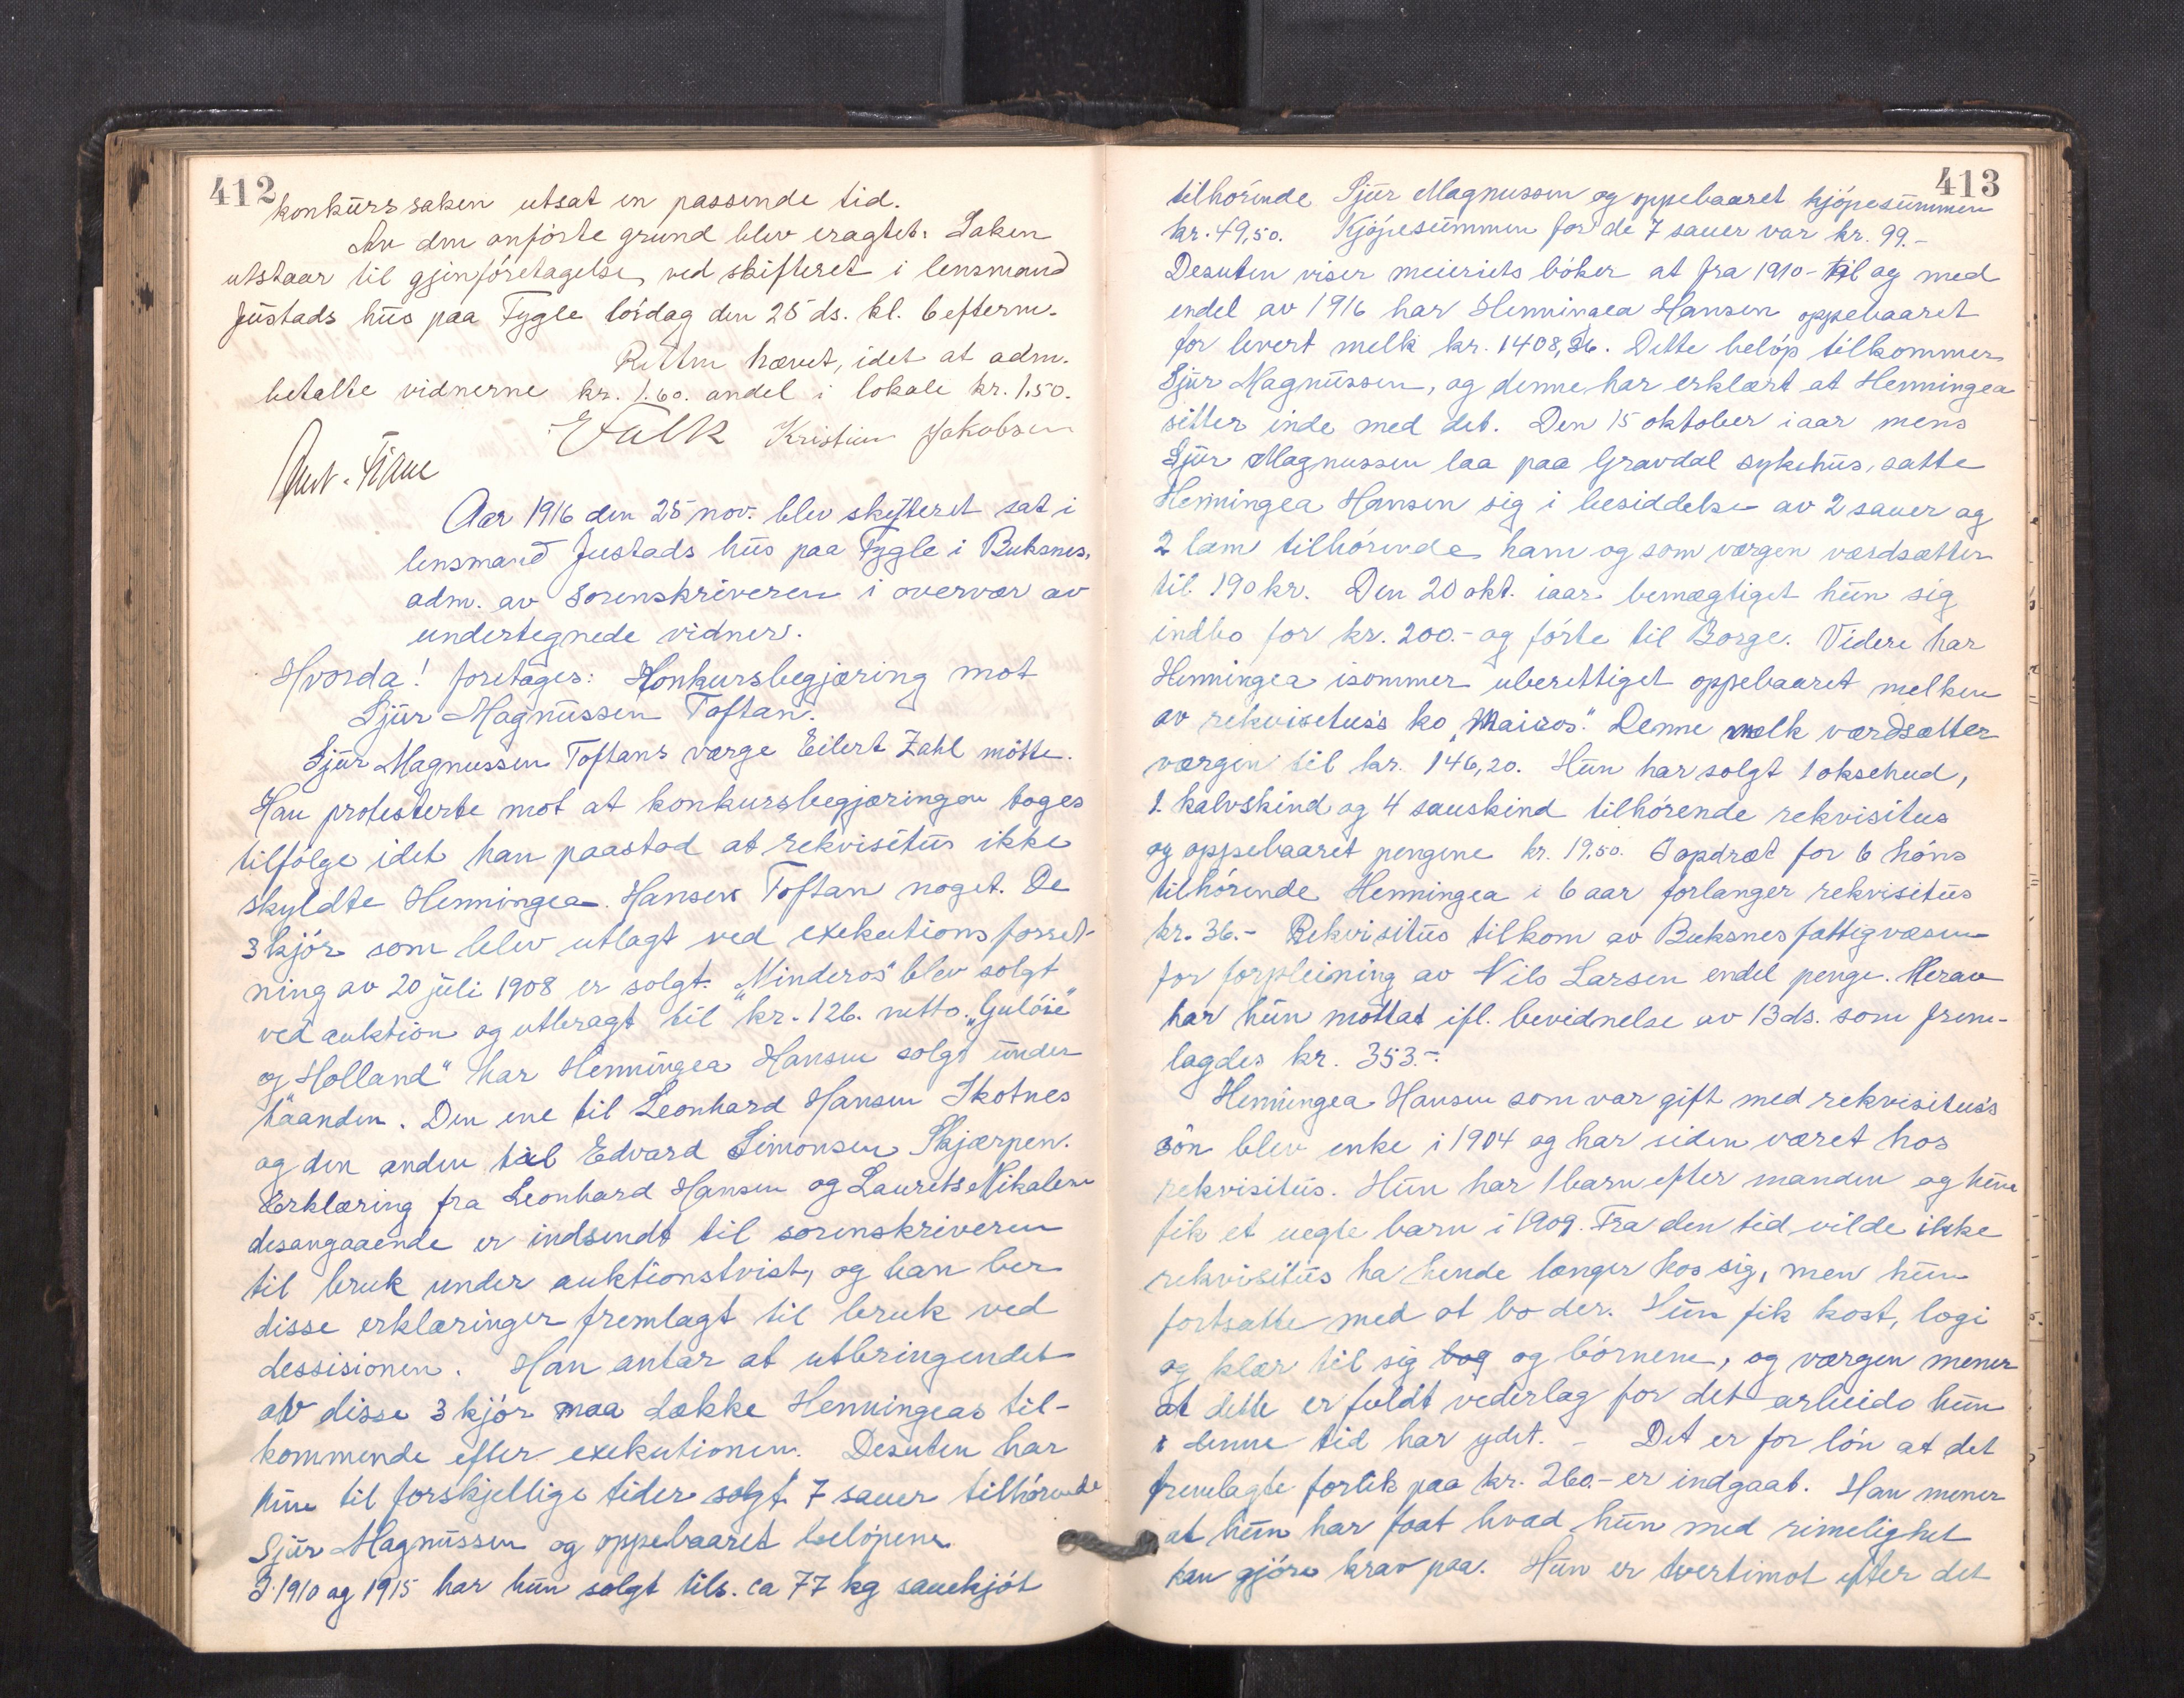 412
konkurssaken utsat en passende tid.
Av den anførte grund blev eragtet: Saken
utstaar til gjenforetagelse ved skifteret i lensmand
Justads hus paa Fygle lørdag den 25 ds. kl. 6 efterm.
Retten hævet, idet at adm.
betalte vidnerne kr. 1.60. andel i lokale kr. 1.50.
EFalk Kristian Jakobsen
Aar 1916 den 25 nov. blev skifteret sat i
lensmand Justads hus paa Fygle i Buksnes,
adm. av sorenskriveren i overvær av
undertegnede vidner.
Hvorda! foretages: Konkursbegjæring mot
Sjur Magnussen Toftan.
Sjur Magnussen Toftans værge Eilert Zahl møtte.
Han protesterte mot at konkursbegjæringen toges
tilfølge idet han paastod at rekvisitus ikke
skyldte Henningea Hansen Toftan noget. De
3 kjør som blev utlagt ved exekutionsforret-
ning av 20 juli 1908 er solgt. "Minderos" blev solgt
ved auktion og utbragt til kr. 126. netto. "Guløie"
og Holland" har Henningea Hansen solgt under
haanden. Den ene til Leonhard Hansen Skotnes
og den anden til Edvard Simonsen Skjærpen.
Erklæring fra Leonhard Hansen og Laurits Nikalsen
desangaaende er indsendt til sorenskriveren
til bruk under auktionstvist, og han ber
disse erklæringer fremlagt til bruk ved
dessisionen. Han antar at utbringendet
av disse 3 kjør maa dække Henningeas til-
kommende efter exekutionen. Desuten har
hun til forskjellige tider solgt 7 sauer tilhørende
Sjur Magnussen og oppebaaret beløpene.
I 1910 og 1915 har hun solgt tils. ca 77 kg sauekjøt
413
tilhørende Sjur Magnussen og oppebaaret kjøpesummen
kr. 49,50. Kjøpesummen for de 7 sauer var kr. 99.-
Desuten viser meieriets bøker at fra 1910- til og med
endel av 1916 har Henningea Hansen oppebaaret
for levert melk kr. 1408,36. Dette beløp tilkommer
Sjur Magnussen, og denne har erklært at Henningea
sitter inde med det. Den 15 oktober iaar mens
Sjur Magnussen laa paa Gravdal sykehus, satte
Henningea Hansen sig i besiddelse av 2 sauer og
2 lam tilhørende ham og som værgen værdsætter
til 190 kr. Den 20 okt. iaar bemægtiget hun sig
indbo for kr. 200.- og førte til Borge. Videre har
Henningea isommer uberettiget oppebaaret melken
av rekvisitus's ko "Mairos". Denne melk værdsætter
værgen til kr. 146,20. Hun har solgt 1 oksehud,
1 kalvskind og 4 saueskind tilhørende rekvisitus
og oppebaaret pengene kr. 19.50. I opdræt for 6 høns
tilhørende Henningea i 6 aar forlanger rekvisitus
kr. 36.- Rekvisitus tilkom av Buksnes fattigvæsen
for forpleining av Nils Larsen endel penge. Herav
har hun mottat ifl. bevidnelse av 13 ds. som frem-
lagdes kr. 353.-
Henningea Hansen som var gift med rekvisitus's
søn blev enke i 1904 og har siden været hos
rekvisitus. Hun har 1 barn efter manden og hun
fik et uegte barn i 1909. Fra den tid vilde ikke
rekvisitus ha hende længer hos sig, men hun
fortsatte med at bo der. Hun fik kost, logi
og klær til sig bog og børnene, og værgen mener
at dette er fuldt vederlag for det arbeide hun
i denne tid har ydet. - Det er for løn at det
fremlagte forlik paa kr. 260.- er indgaat. Han mener
at hun har faat hvad hun med rimelighet
kan gjøre krav paa. Hun er tvertimot efter det